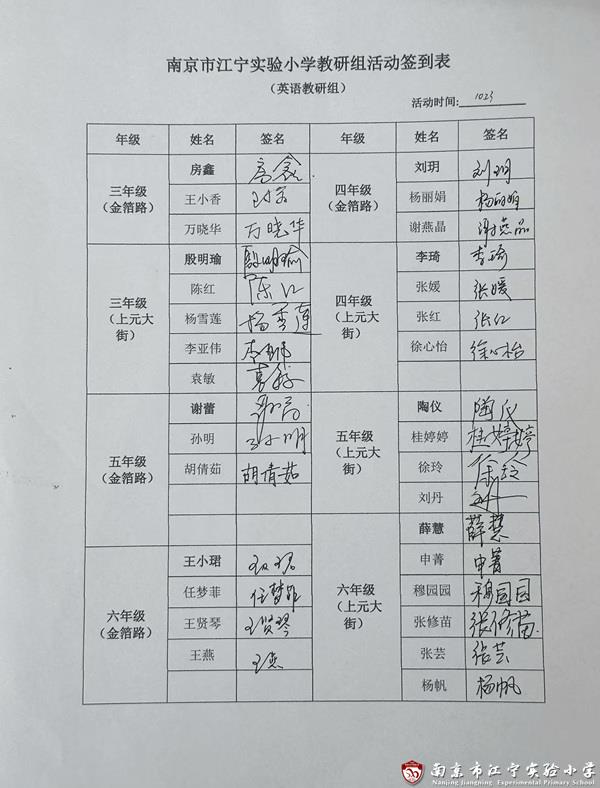 南京市江宁实验小学教研组活动签到表
（英语教研组）
活动时间: 1023
年级 姓名 签名 年级 姓名 签名
三年级（金箔路） 房鑫 房鑫 四年级（金箔路） 刘玥 刘玥
王小香 杨丽娟 杨丽娟
万晓华 万晓华 谢燕晶 谢燕晶
三年级（上元大街） 殷明瑜 殷明瑜 四年级（上元大街） 李琦 李琦
陈红 陈红 张媛 张媛
杨雪莲 杨雪莲 张红 张红
李亚伟 李亚伟 徐心怡 徐心怡
袁敏 袁敏
五年级（金箔路） 谢蕾 谢蕾 五年级（上元大街） 陶仪 陶仪
孙明 孙小明 桂婷婷 桂婷婷
胡倩茹 胡倩茹 徐玲 徐玲
刘丹 刘丹
六年级（上元大街） 薛慧 薛慧
六年级（金箔路） 王小珺 王小珺 申菁 申菁
任梦菲 任梦菲 穆园园 穆园园
王贤琴 王贤琴 张修苗 张修苗
王燕 王燕 张芸 张芸
杨帆 杨帆
南京市江宁实验小学
Nanjing Jiangning Experimental Primary School